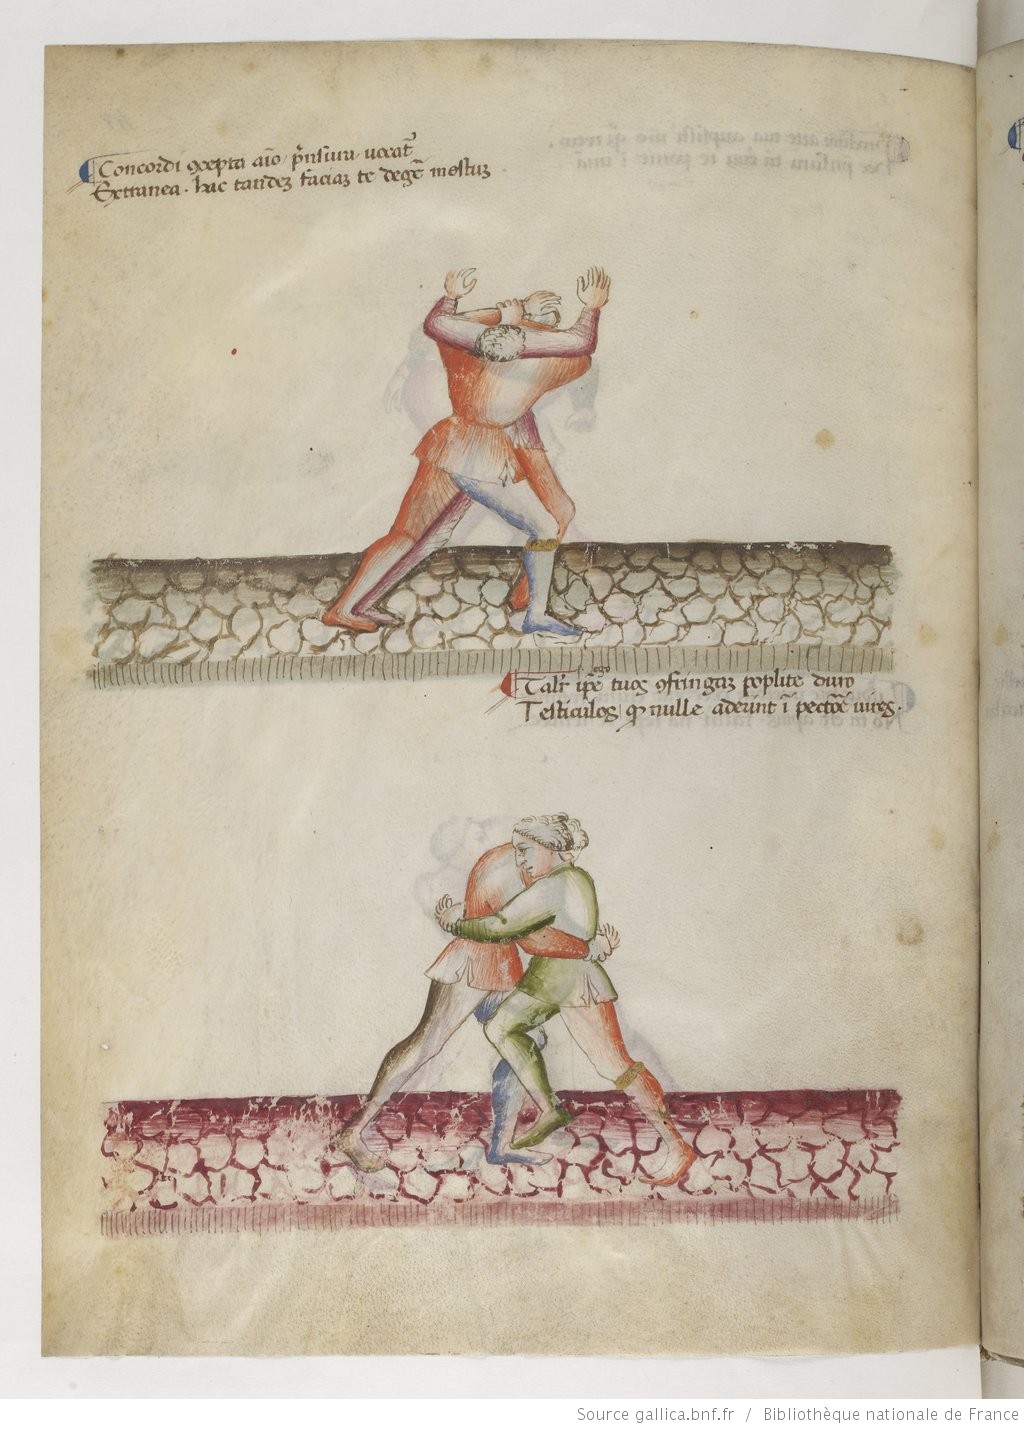 Concordi ꝯcepta aīo p̄nsura uocat᷑
Extranea. hac tandeꝫ faciaꝫ te degē mestuꝫ
ego
Talr̄ ip̄e tuos ꝯfringaꝫ poplite duro
Testiculos ꝙ nulle aderūt ī pectōe uires.
Source gallica.bnf.fr / Bibliothèque nationale de France